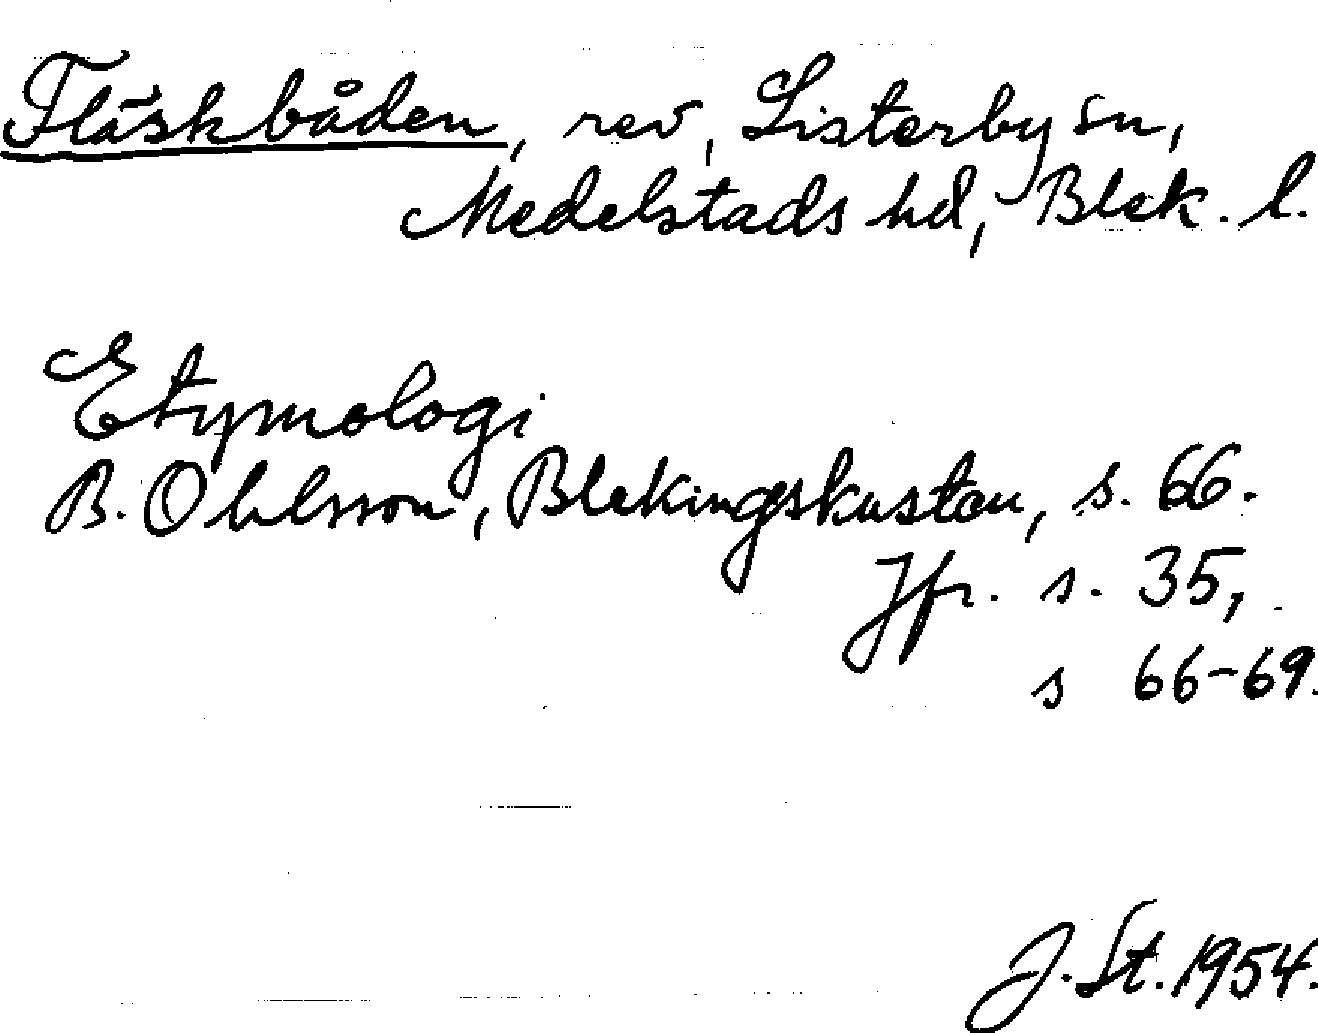 Fläskbåden, rev, Listerby sn,
Medelstads hd, Blek. l.
Etymologi
B. Ohlsson, Blekingskusten, s. 66.
Jfr. s. 35,
s 66-69.
J. St. 1954.